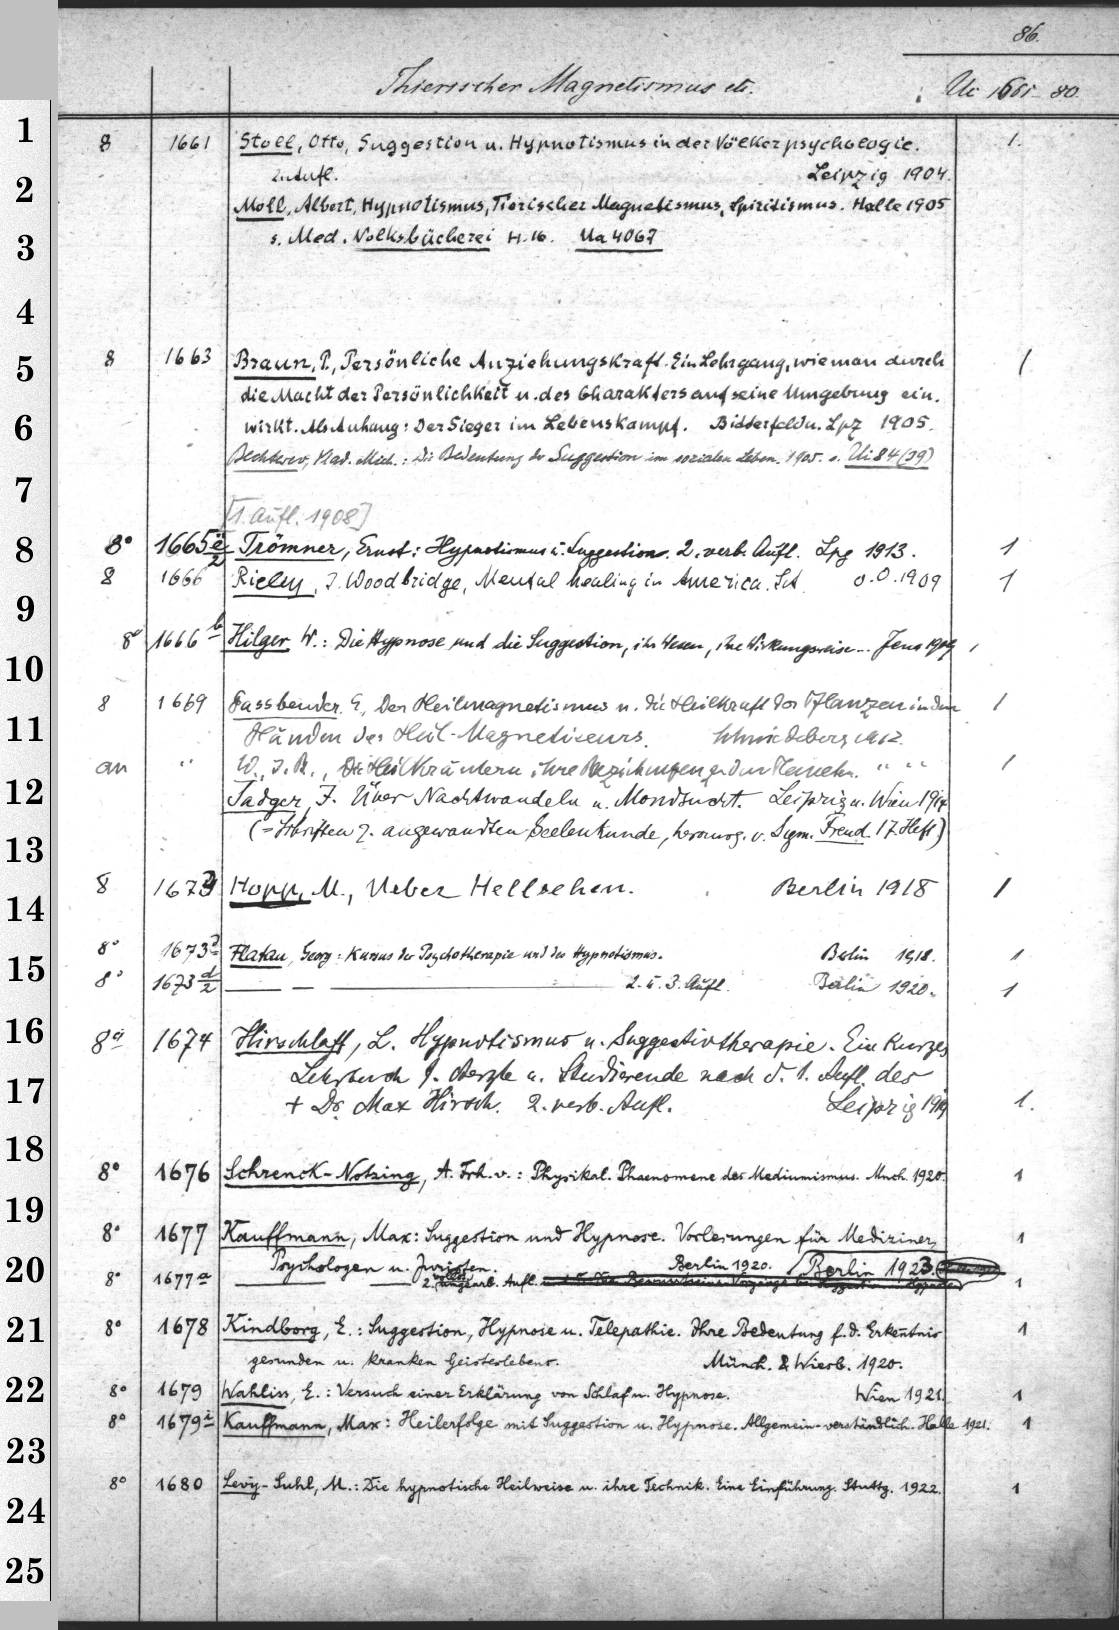 86.
Thierischer Magnetismus etc. Uc 1661-80.
1
8 1661 Stoll, Otto, Suggestion u. Hypnotismus in der Völkerpsychologie. 1.
2. Aufl. Leipzig 1904.
2
Moll, Albert, Hypnotismus, Tierischer Magnetismus, Spiritismus. Halle 1905
s. Med. Volksbücherei H. 16. Ua 4067
3
4
8 1663 Braun, P., Persönliche Anziehungskraft. Ein Lehrgang, wie man durch 1
5
die Macht der Persönlichkeit u. des Charakters auf seine Umgebung ein.
wirkt. Als Anhang: Der Sieger im Lebenskampf. Bitterfeld u. Lpz 1905.
6
Bechterew, Wlad. Mich.: Die Bedeutung der Suggestion im sozialen Leben. 1905. s. Ui 84 (39)
7
[1. Aufl. 1908]
8° 1665 Trömner, Ernst: Hypnotismus u. Suggestion. 2. verb. Aufl. Lpg 1913. 1
8
8 1666 Rieley, I. Woodbridge, Mental healing in America. SA o.O. 1909 1
9
8° 1666 b Hilger, W.: Die Hypnose und die Suggestion, ihr Wesen, ihre Wirkungsweise... Jena 1909 1
10
8 1669 Fassbender, E, Der Heilmagnetismus u. die Heilkraft der Pflanzen in den 1
11
Händen des Heil-Magnetiseurs. Schmiedeberg 1912.
an " W., J. B., Die Heilkräutern, ihre Beziehungen zu den Planeten. " " 1
12
Sadger, F. Über Nachtwandeln u. Mondsucht. Leipzig u. Wien 1914
(= Schriften z. angewandten Seelenkunde, herausg. v. Sigm. Freud. 17. Heft)
13
8 1673 Hopp, M., Ueber Hellsehen. Berlin 1918 1
14
8° 1673 Flatau, Georg: Kursus der Psychotherapie und des Hypnotismus. Berlin 1918. 1
15
8° 1673 d/2 — — — 2. u. 3. Aufl. Berlin 1920. 1
16
8° 1674 Hirschlaff, L. Hypnotismus u. Suggestivtherapie. Ein kurzes
Lehrbuch f. Aerzte u. Studierende nach d. 1. Aufl. des
17
+ Dr. Max Hirsch. 2. verb. Aufl. Leipzig 1919 1.
18
8° 1676 Schrenck-Notzing, A. Frh. v.: Physikal. Phaenomene des Mediumismus. Mnch. 1920. 1
19
8° 1677 Kauffmann, Max: Suggestion und Hypnose. Vorlesungen für Mediziner, 1
20
Psychologen u. Juristen. Berlin 1920. Berlin 1923.
8° 1677 a — — 2. umgearb. Aufl. 1
21
8° 1678 Kindborg, E.: Suggestion, Hypnose u. Telepathie. Ihre Bedeutung f. d. Erkenntnis 1
gesunden u. kranken Geisteslebens. Münch. & Wiesb. 1920.
22
8° 1679 Wahliss, E.: Versuch einer Erklärung von Schlaf u. Hypnose. Wien 1921. 1
8° 1679 Kauffmann, Max: Heilerfolge mit Suggestion u. Hypnose. Allgemein-verständlich. Halle 1921. 1
23
8° 1680 Levy-Suhl, M.: Die hypnotische Heilweise u. ihre Technik. Eine Einführung. Stuttg. 1922. 1
24
25